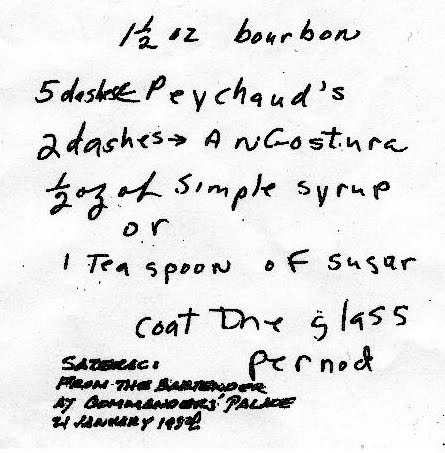 1 1/2 oz bourbon
5 dashes Peychaud's
2 dashes → Angostura
1/2 oz of simple syrup
or
1 Teaspoon of sugar
coat the glass
pernod
SAZERAC:
FROM THE BARTENDER
AT COMMANDERS' PALACE
21 JANUARY